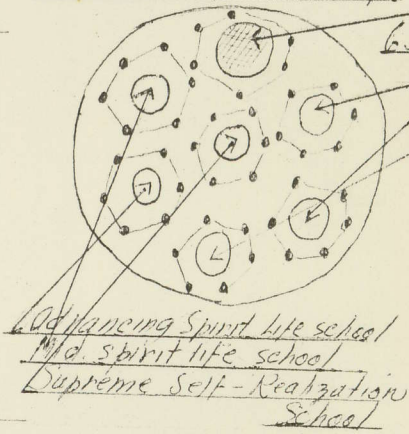 6.
Advancing Spirit life school
Mid. spirit life school
Supreme Self-Realization
School